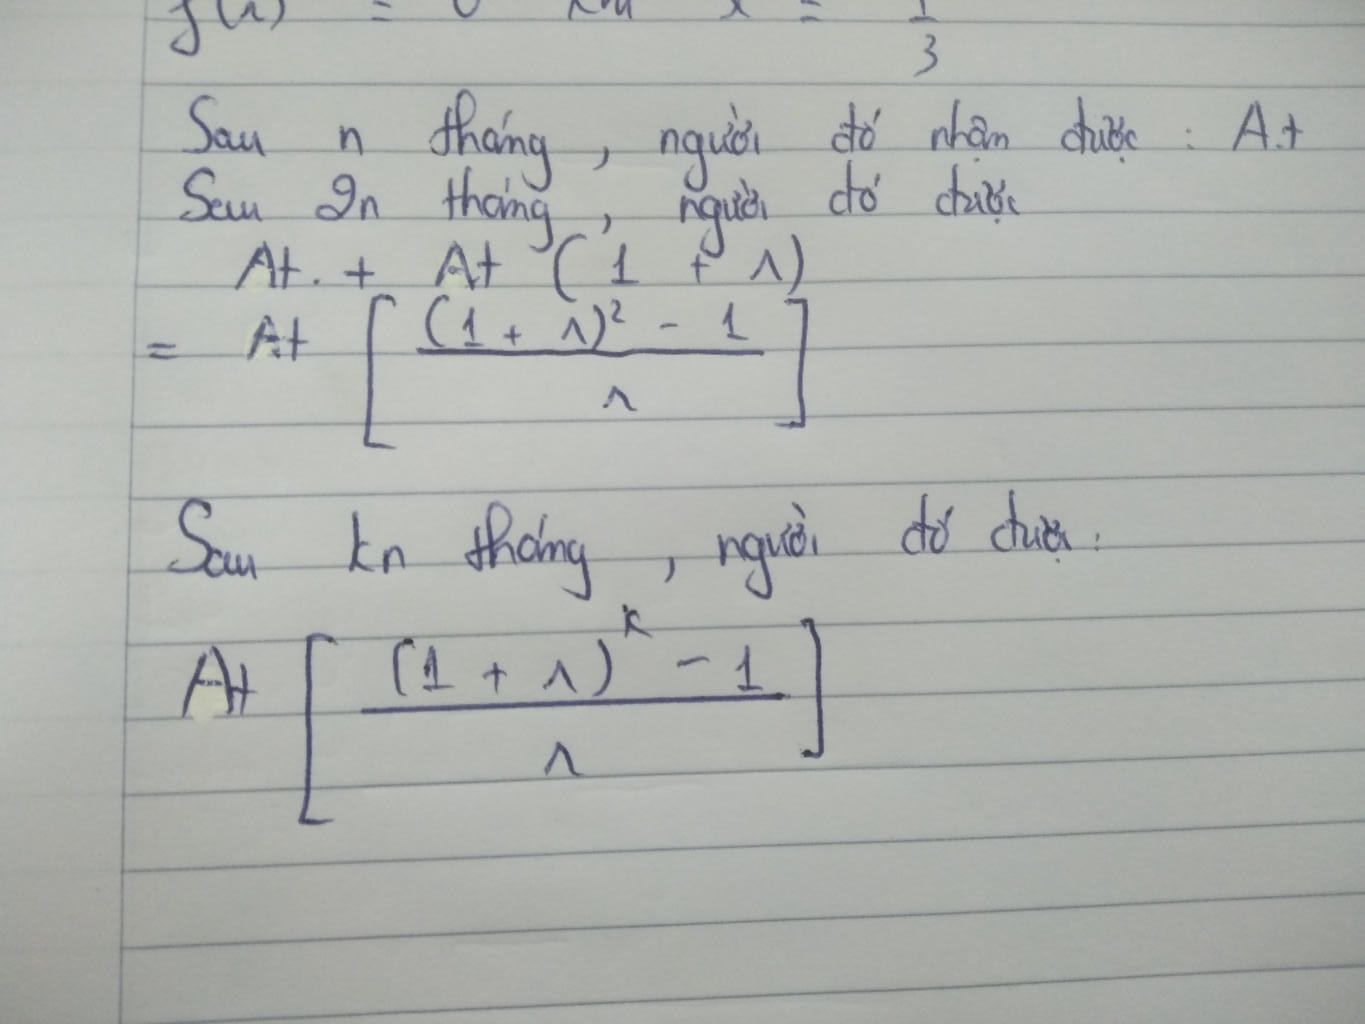 f(x) = 0 khi x = 1/3
Sau n tháng, người đó nhận được : A.t
Sau 2n tháng, người đó được
At. + At (1 + r)
= A.t [ ((1 + r)² - 1) / r ]
Sau kn tháng, người đó được :
At [ ((1 + r)^k - 1) / r ]